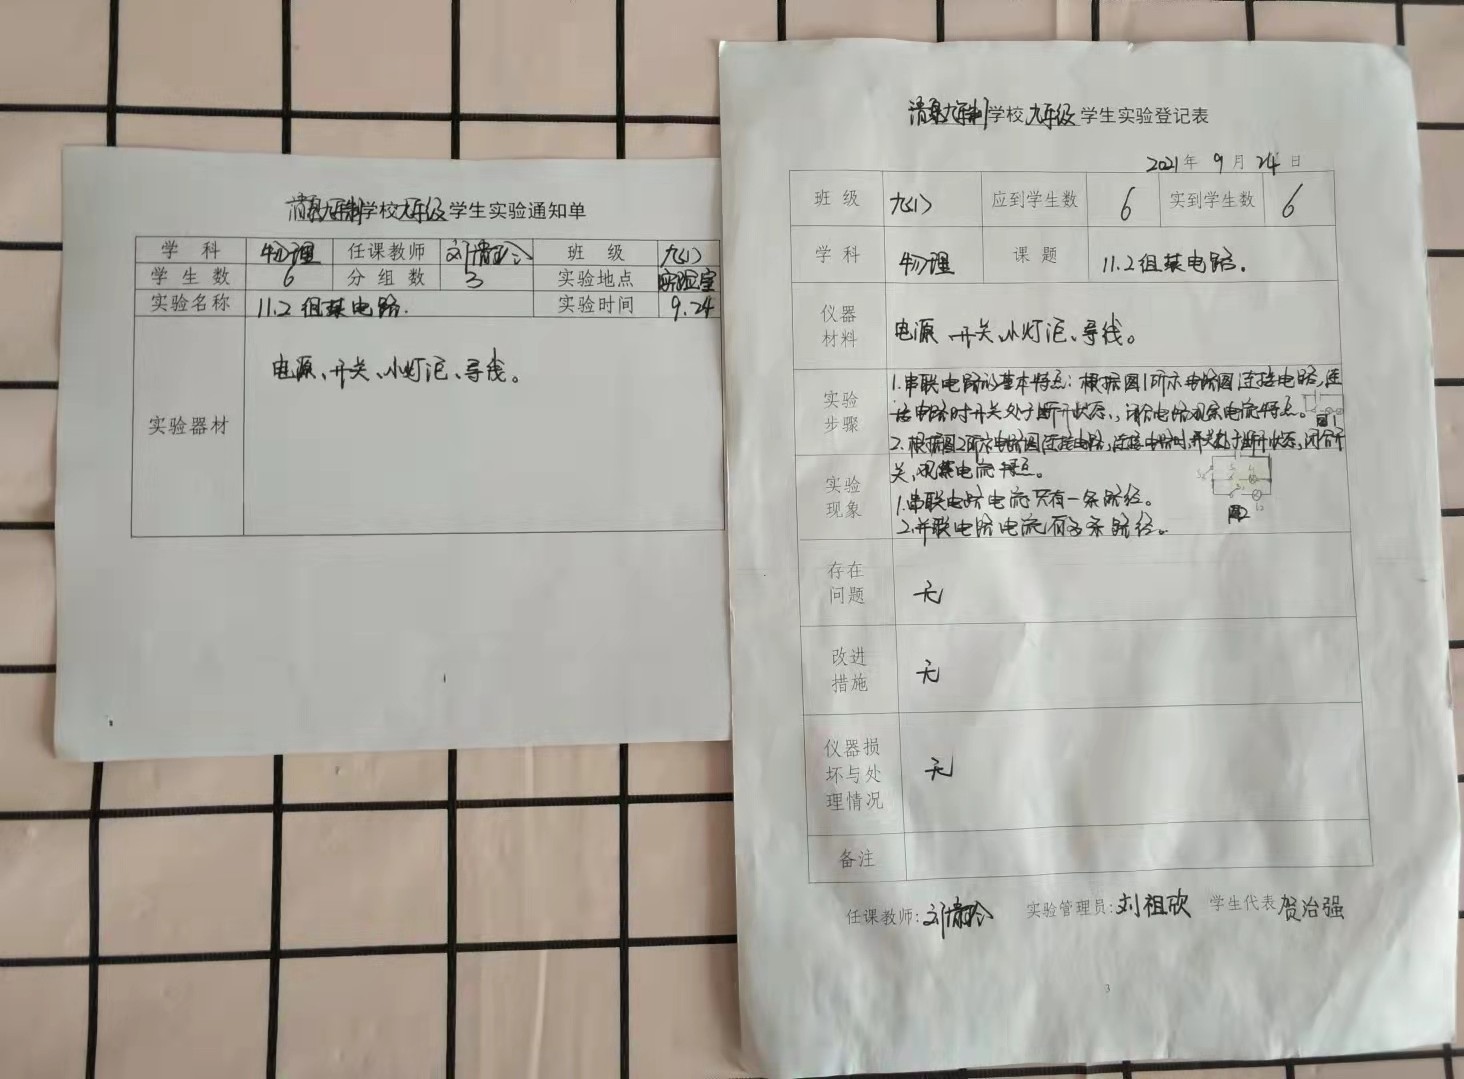 学校九年级学生实验通知单
学科 物理 任课教师 班级 九(1)
学生数 6 分组数 3 实验地点 实验室
实验名称 11.2组装电路. 实验时间 9.24
实验器材 电源、开关、小灯泡、导线。
学校九年级学生实验登记表
2021年9月24日
班级 九(1) 应到学生数 6 实到学生数 6
学科 物理 课题 11.2组装电路.
仪器
材料
电源、开关、小灯泡、导线。
实验
步骤
1.串联电路的基本特点:根据图1所示电路图连接电路,连
接电路时开关处于断开状态,闭合电路观察电流特点。
图1
2.根据图2所示电路图连接电路,连接电路时,开关处于断开状态,闭合开
关,观察电流特点。
图2
实验
现象
1.串联电路电流只有一条路径。
2.并联电路电流有多条路径。
存在
问题
无
改进
措施
无
仪器损
坏与处
理情况
无
备注
任课教师: 实验管理员:刘祖欣 学生代表贺治强
3